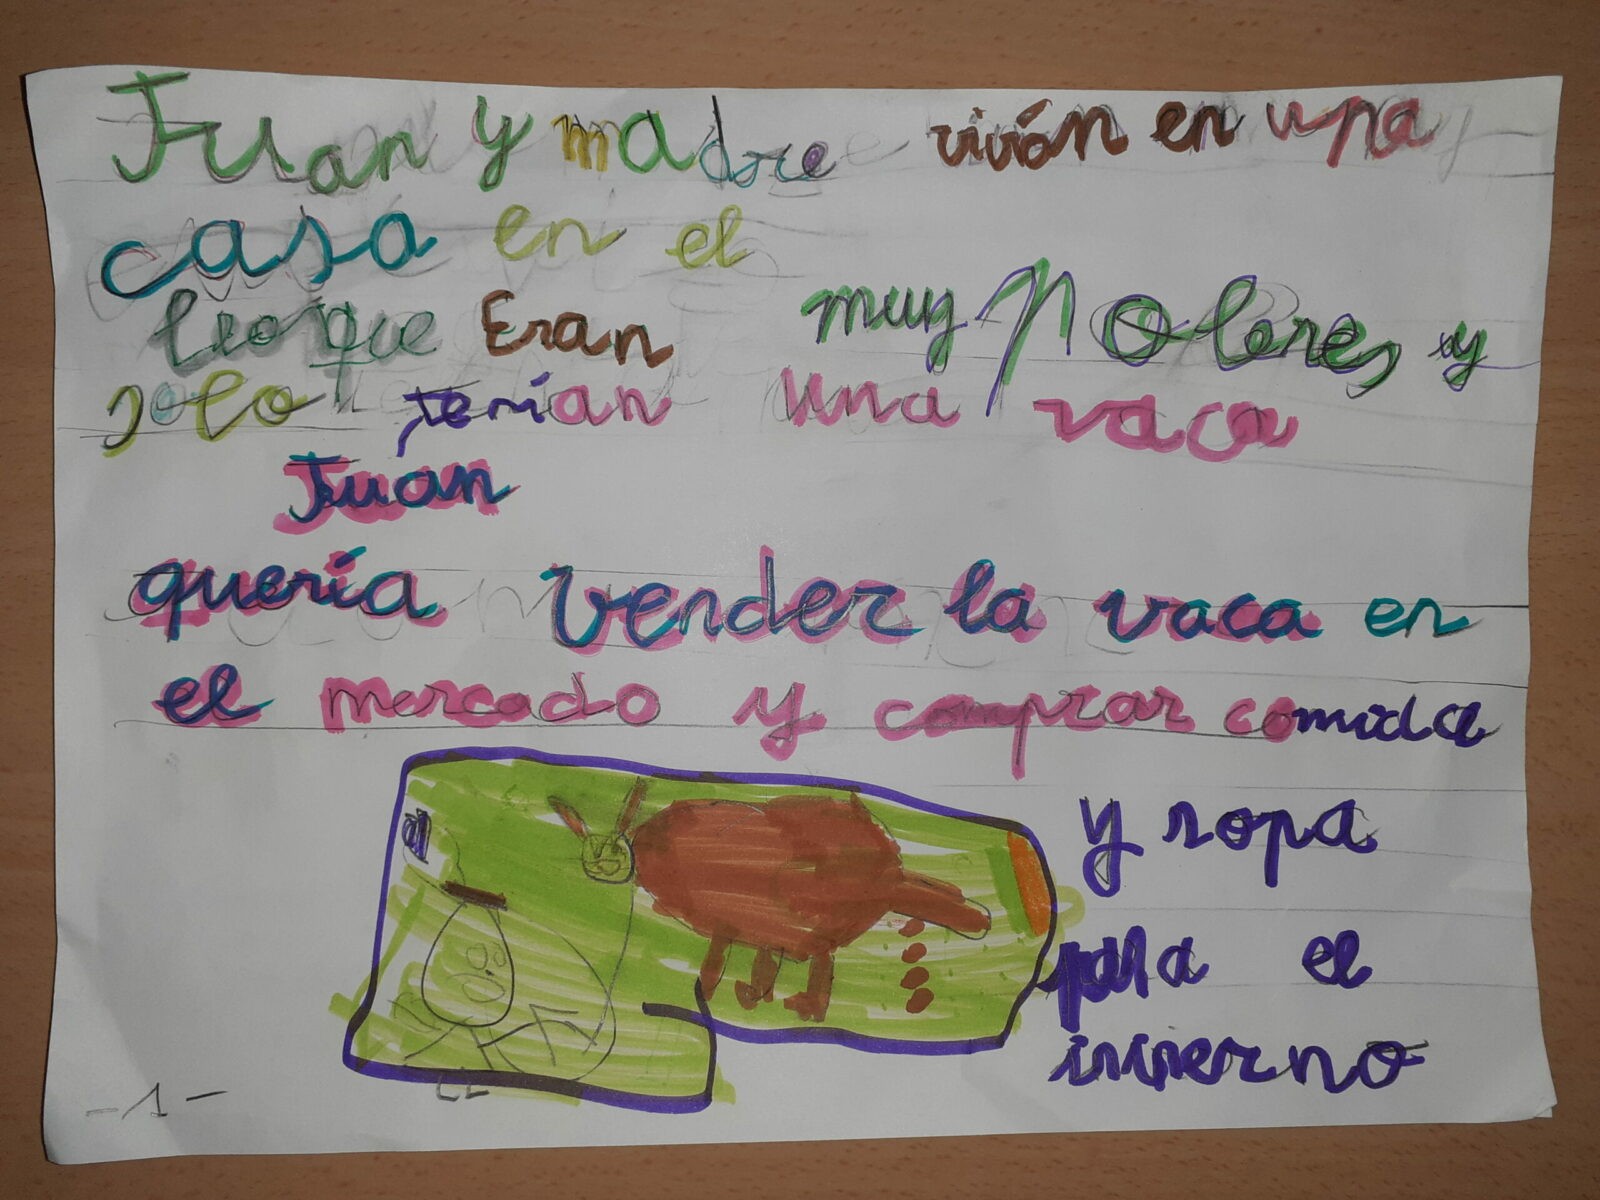 Juan y madre vivían en una
casa en el
bosque Eran muy Pobres y
solo tenían una vaca
Juan
quería vender la vaca en
el mercado y comprar comida
y ropa
para el
invierno
-1-